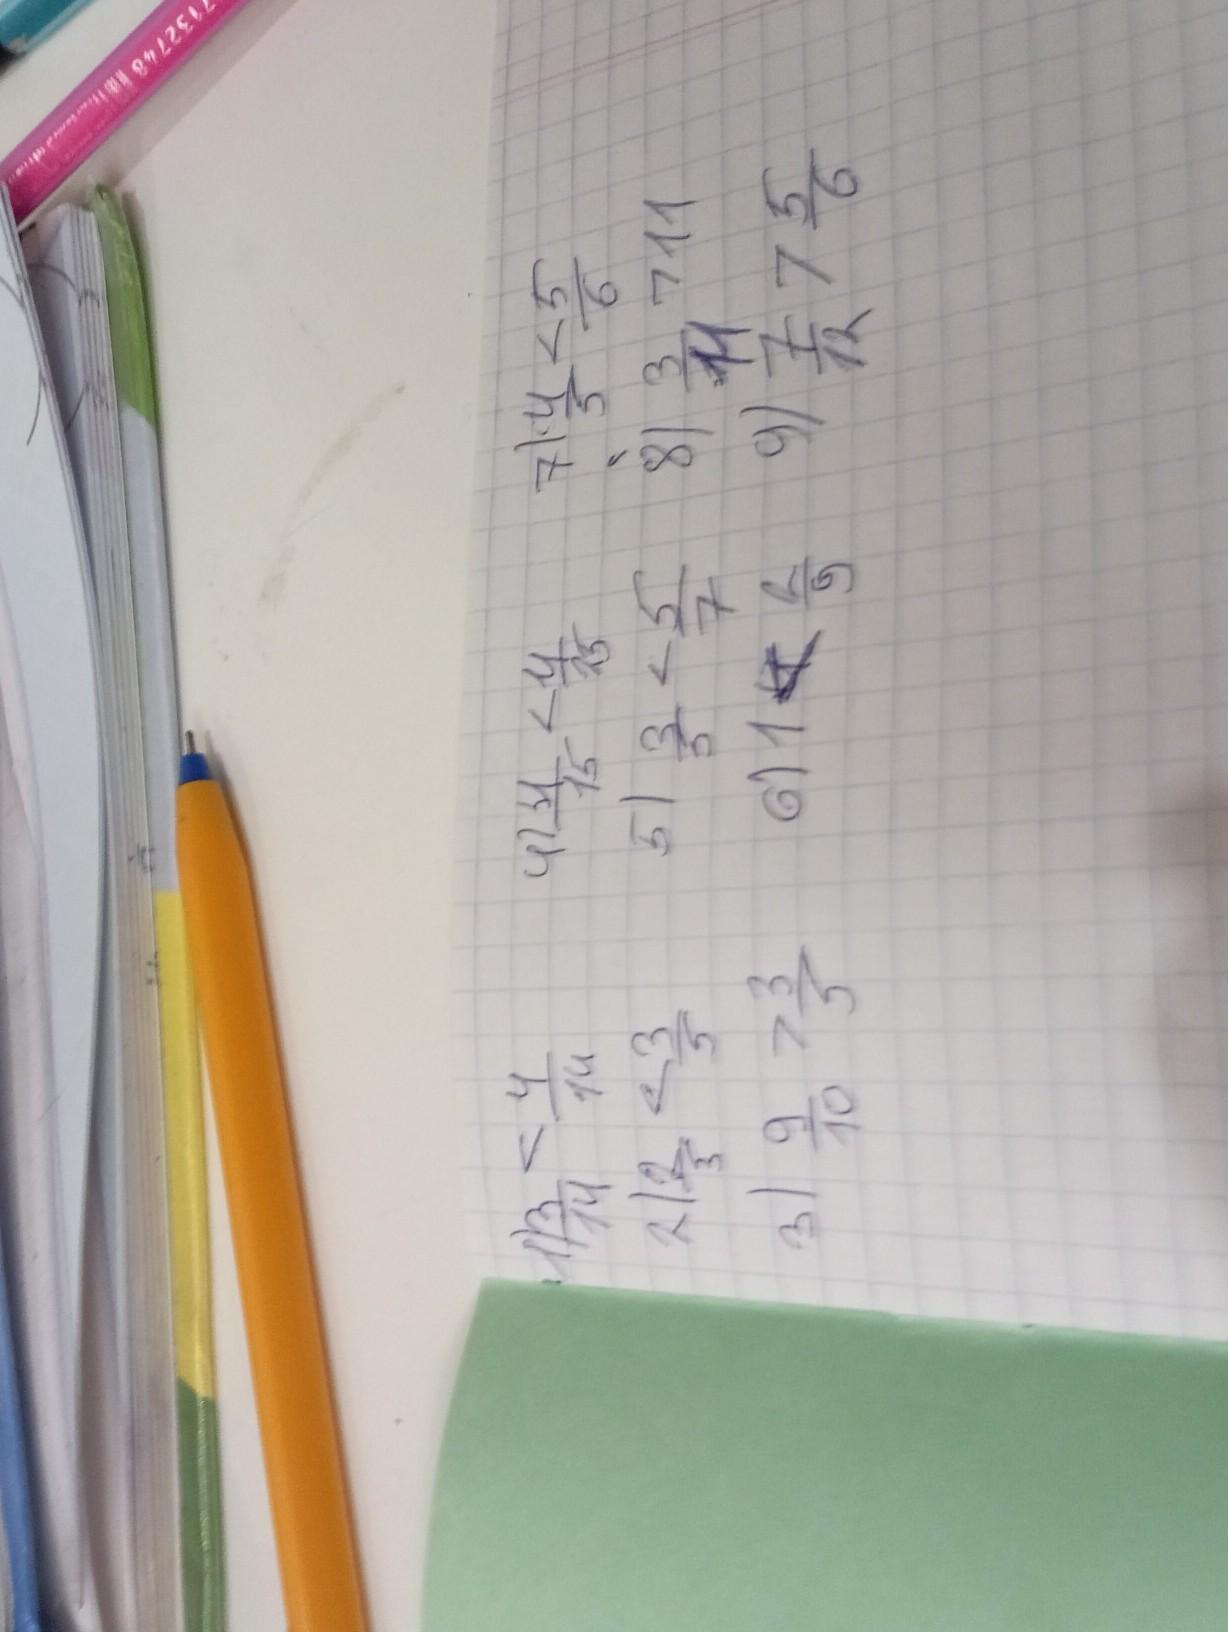 1) 3/14 < 4/14
2) 2/3 < 3/5
3) 9/10 > 3/5
4) 4/15 < 4/15
5) 3/5 < 5/7
6) 1
7) 4/5 < 5/6
8) 3/14 > 11
9) 7/12 > 5/6
7132748